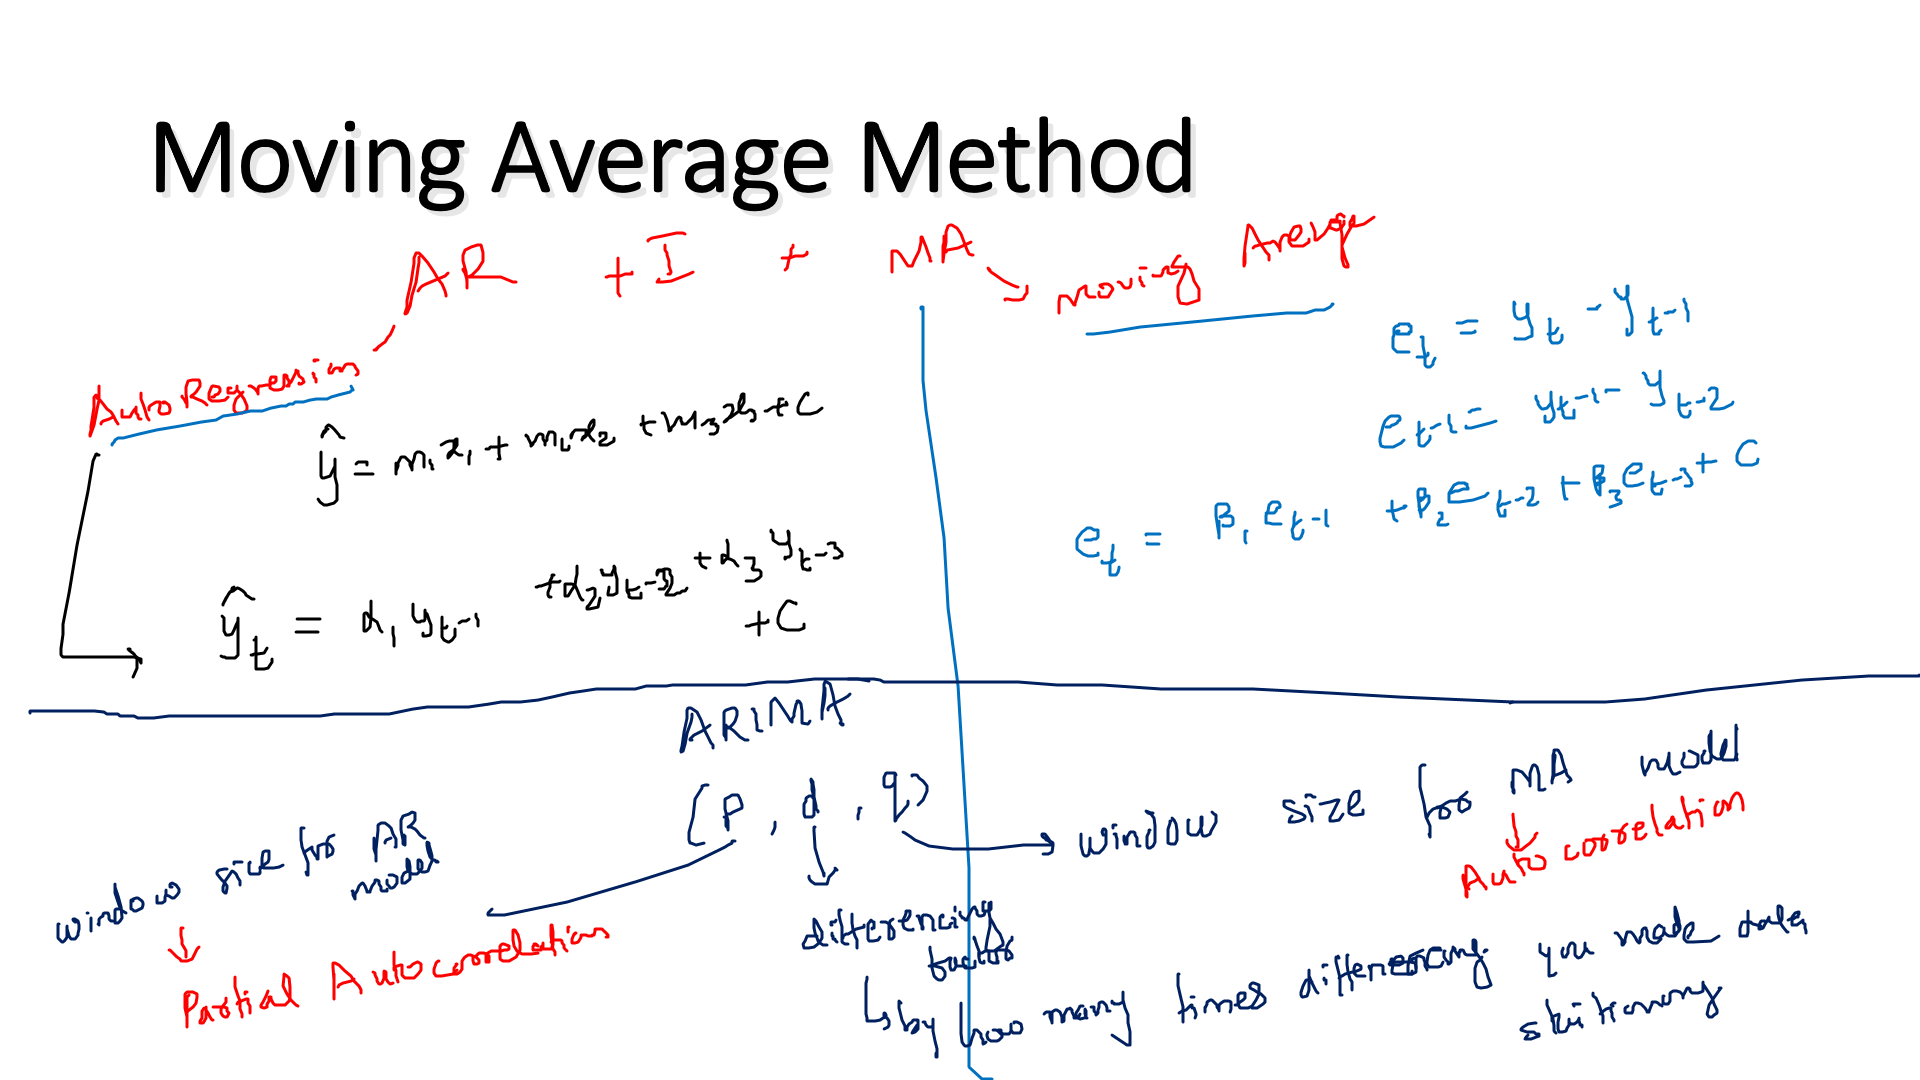 Moving Average Method
AR + I + MA
Moving Average
AutoRegression
ŷ = m₁x₁ + m₂x₂ + m₃x₃ + C
ŷₜ = α₁ yₜ₋₁ + α₂yₜ₋₂ + α₃ yₜ₋₃
+ C
eₜ = yₜ - yₜ₋₁
eₜ₋₁ = yₜ₋₁ - yₜ₋₂
eₜ = β₁ eₜ₋₁ + β₂ eₜ₋₂ + β₃ eₜ₋₃ + C
ARIMA
(P, d, q)
window size for AR
model
Partial Autocorrelation
differencing
factor
by how many times differencing you made data
stationary
window size for MA model
Auto correlation